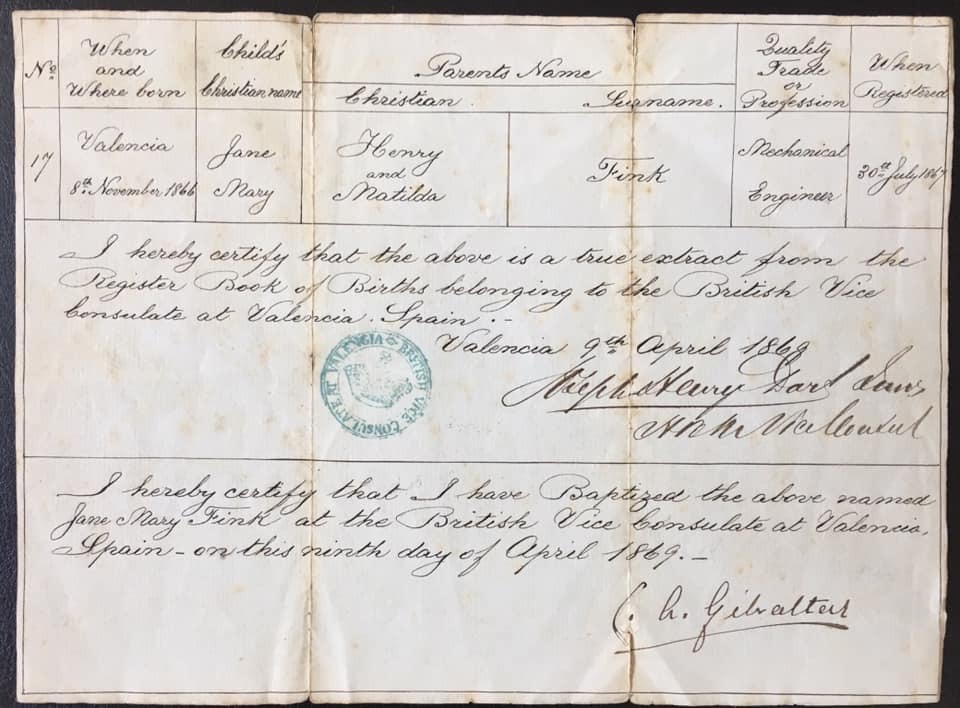 No.
When
and
Where born
Child's
Christian name
Parents Name
Christian. Surname.
Quality
Trade
or
Profession
When
Registered
17
Valencia
8th November 1866
Jane
Mary
Henry
and
Matilda
Fink
Mechanical
Engineer
30th July 1867
I hereby certify that the above is a true extract from the
Register Book of Births belonging to the British Vice
Consulate at Valencia. Spain.-
Valencia 9th April 1869
BRITISH VICE CONSULATE AT VALENCIA
Joseph Henry Dart
Vice Consul
I hereby certify that I have Baptized the above named
Jane Mary Fink at the British Vice Consulate at Valencia,
Spain - on this ninth day of April 1869.-
C. A. Gibraltar